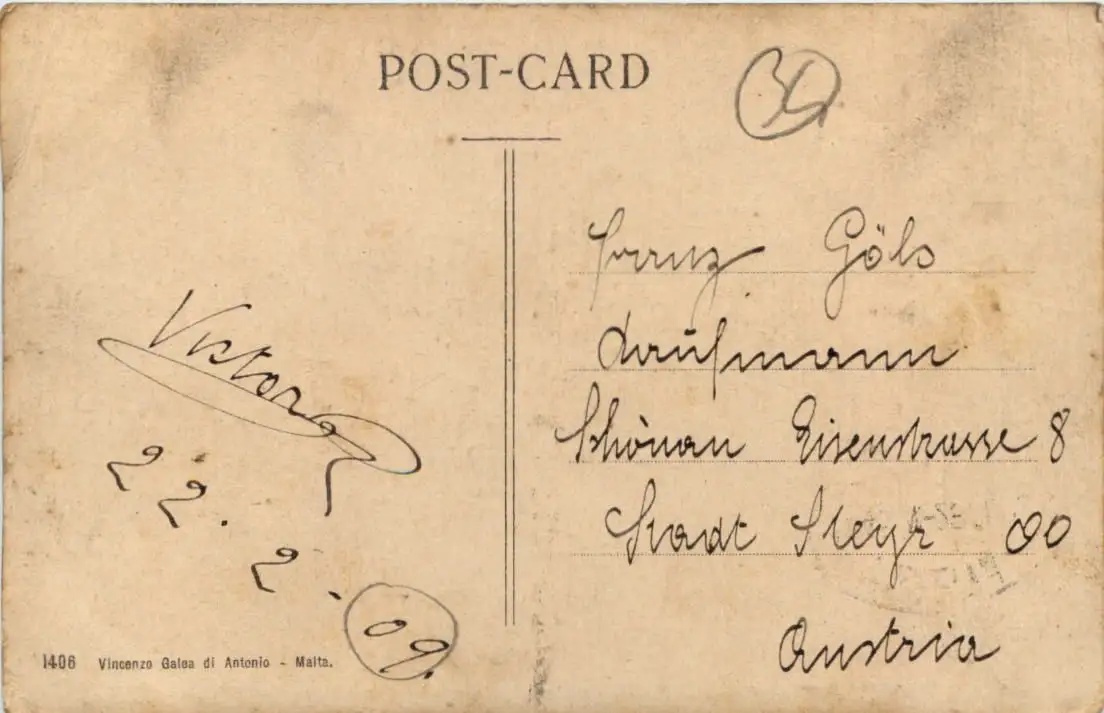 POST-CARD
30
Victor
22. 2. 09.
1406 Vincenzo Galea di Antonio - Malta.
Franz Göls
Kaufmann
Schönau Eisenstrasse 8
Stadt Steyr OÖ
Austria